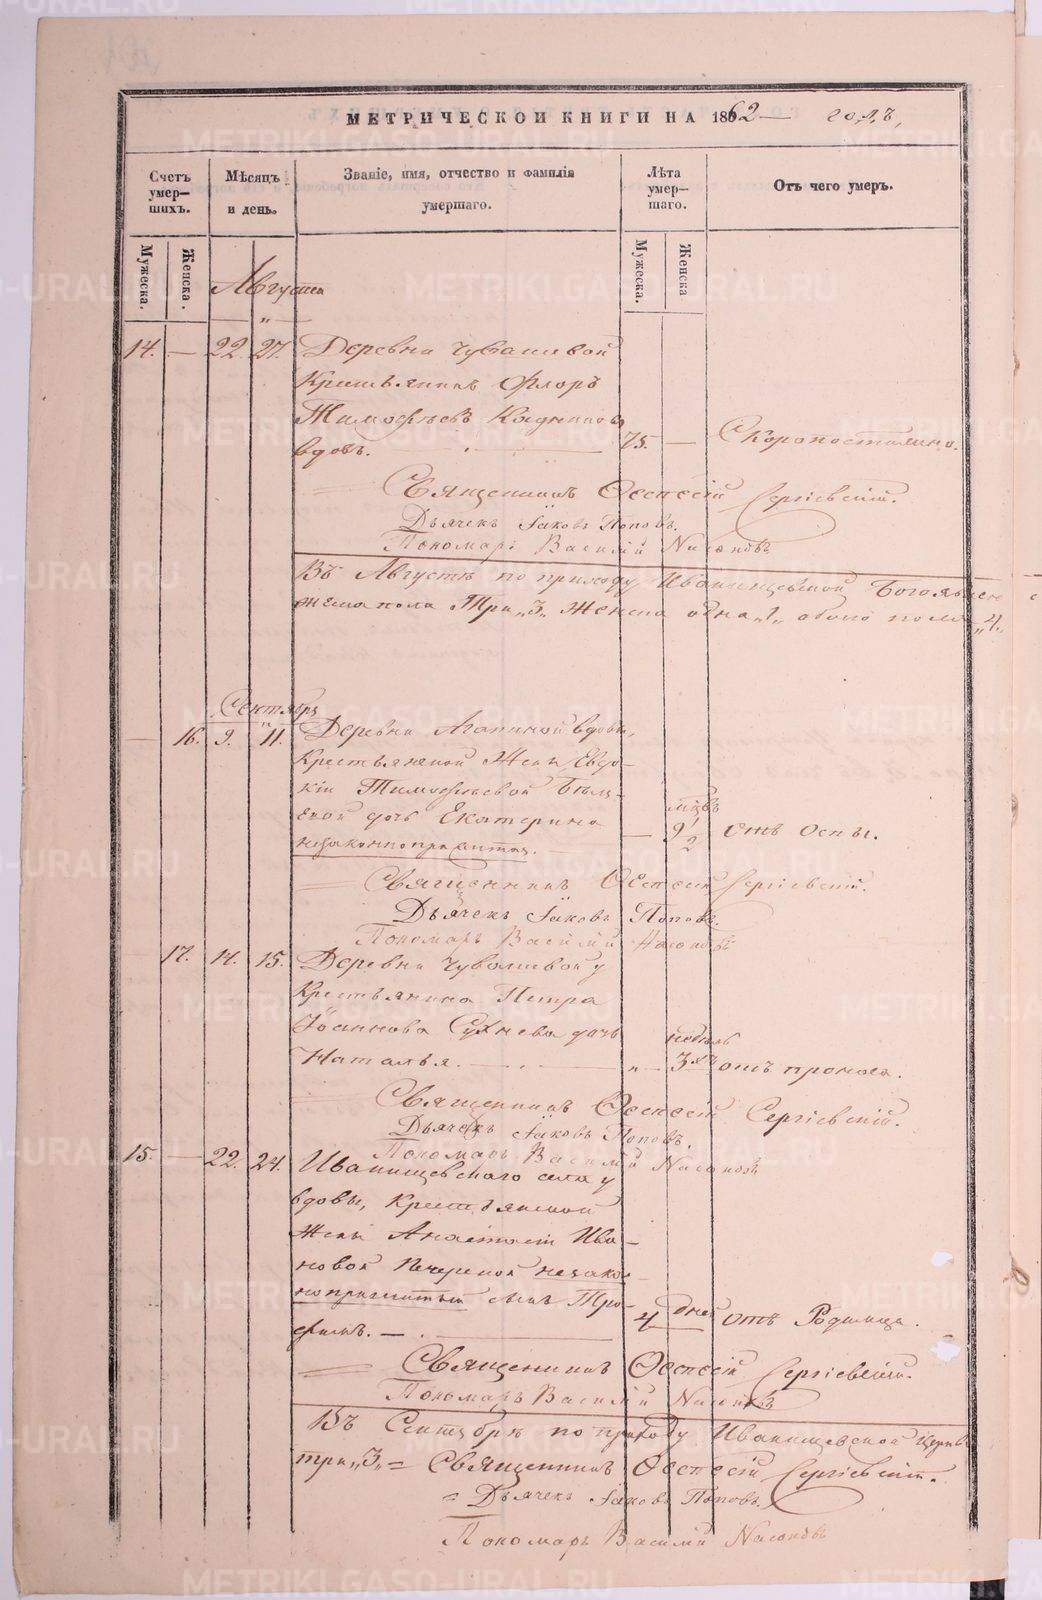 МЕТРИЧЕСКОЙ КНИГИ НА 1862 годъ,
Счетъ умер-шихъ.
Мѣсяцъ и день.
Званіе, имя, отчество и фамилія умершаго.
Лѣта умер-шаго.
Отъ чего умеръ.
Мужеска.
Женска.
Мужеска.
Женска
Августа
14. — 22. 27. Деревни Чувашевой
Крестьянинъ Флоръ
Тимофѣевъ
вдовъ. 75. — Скоропостижно.
Священникъ Сергіевскій.
Дьячекъ Іаковъ Поповъ.
Пономарь Василій Насоновъ
Въ Августѣ по приходу Иванищевской Богоявлен
пола Три „3„ Женска одна „1„ обоего пола „4„
Сентябрь
— 16. 9. 11. Деревни вдовы,
Крестьянской Жены Евдо-
кіи Тимофѣевой
дочь Екатерина
незаконноприжитая.
мѣсц
— 9 1/2 отъ Оспы.
Священникъ Сергіевскій.
Дьячекъ Іаковъ Поповъ.
Пономарь Василій Насоновъ
17. 14. 15. Деревни Чувашевой у
Крестьянина Петра
Іоаннова Сухнева дочь
Наталья.
недѣль
„ — 3хъ отъ поноса.
Священникъ Сергіевскій.
Дьячекъ Іаковъ Поповъ.
Пономарь Василій Насоновъ
15. — 22. 24. Иванищевскаго села у
вдовы, Крестьянской
Жены Анастасіи Ива-
новой незакон-
ноприжитый сынъ Тро-
фимъ. —
4 дней отъ Родимца.
Священникъ Сергіевскій.
Пономарь Василій Насоновъ
Въ Сентябрѣ по приходу Иванищевской церкв
три „3„ = Священникъ Сергіевскій.
= Дьячекъ Іаковъ Поповъ.
Пономарь Василій Насоновъ
METRIKI.GASO-URAL.RU